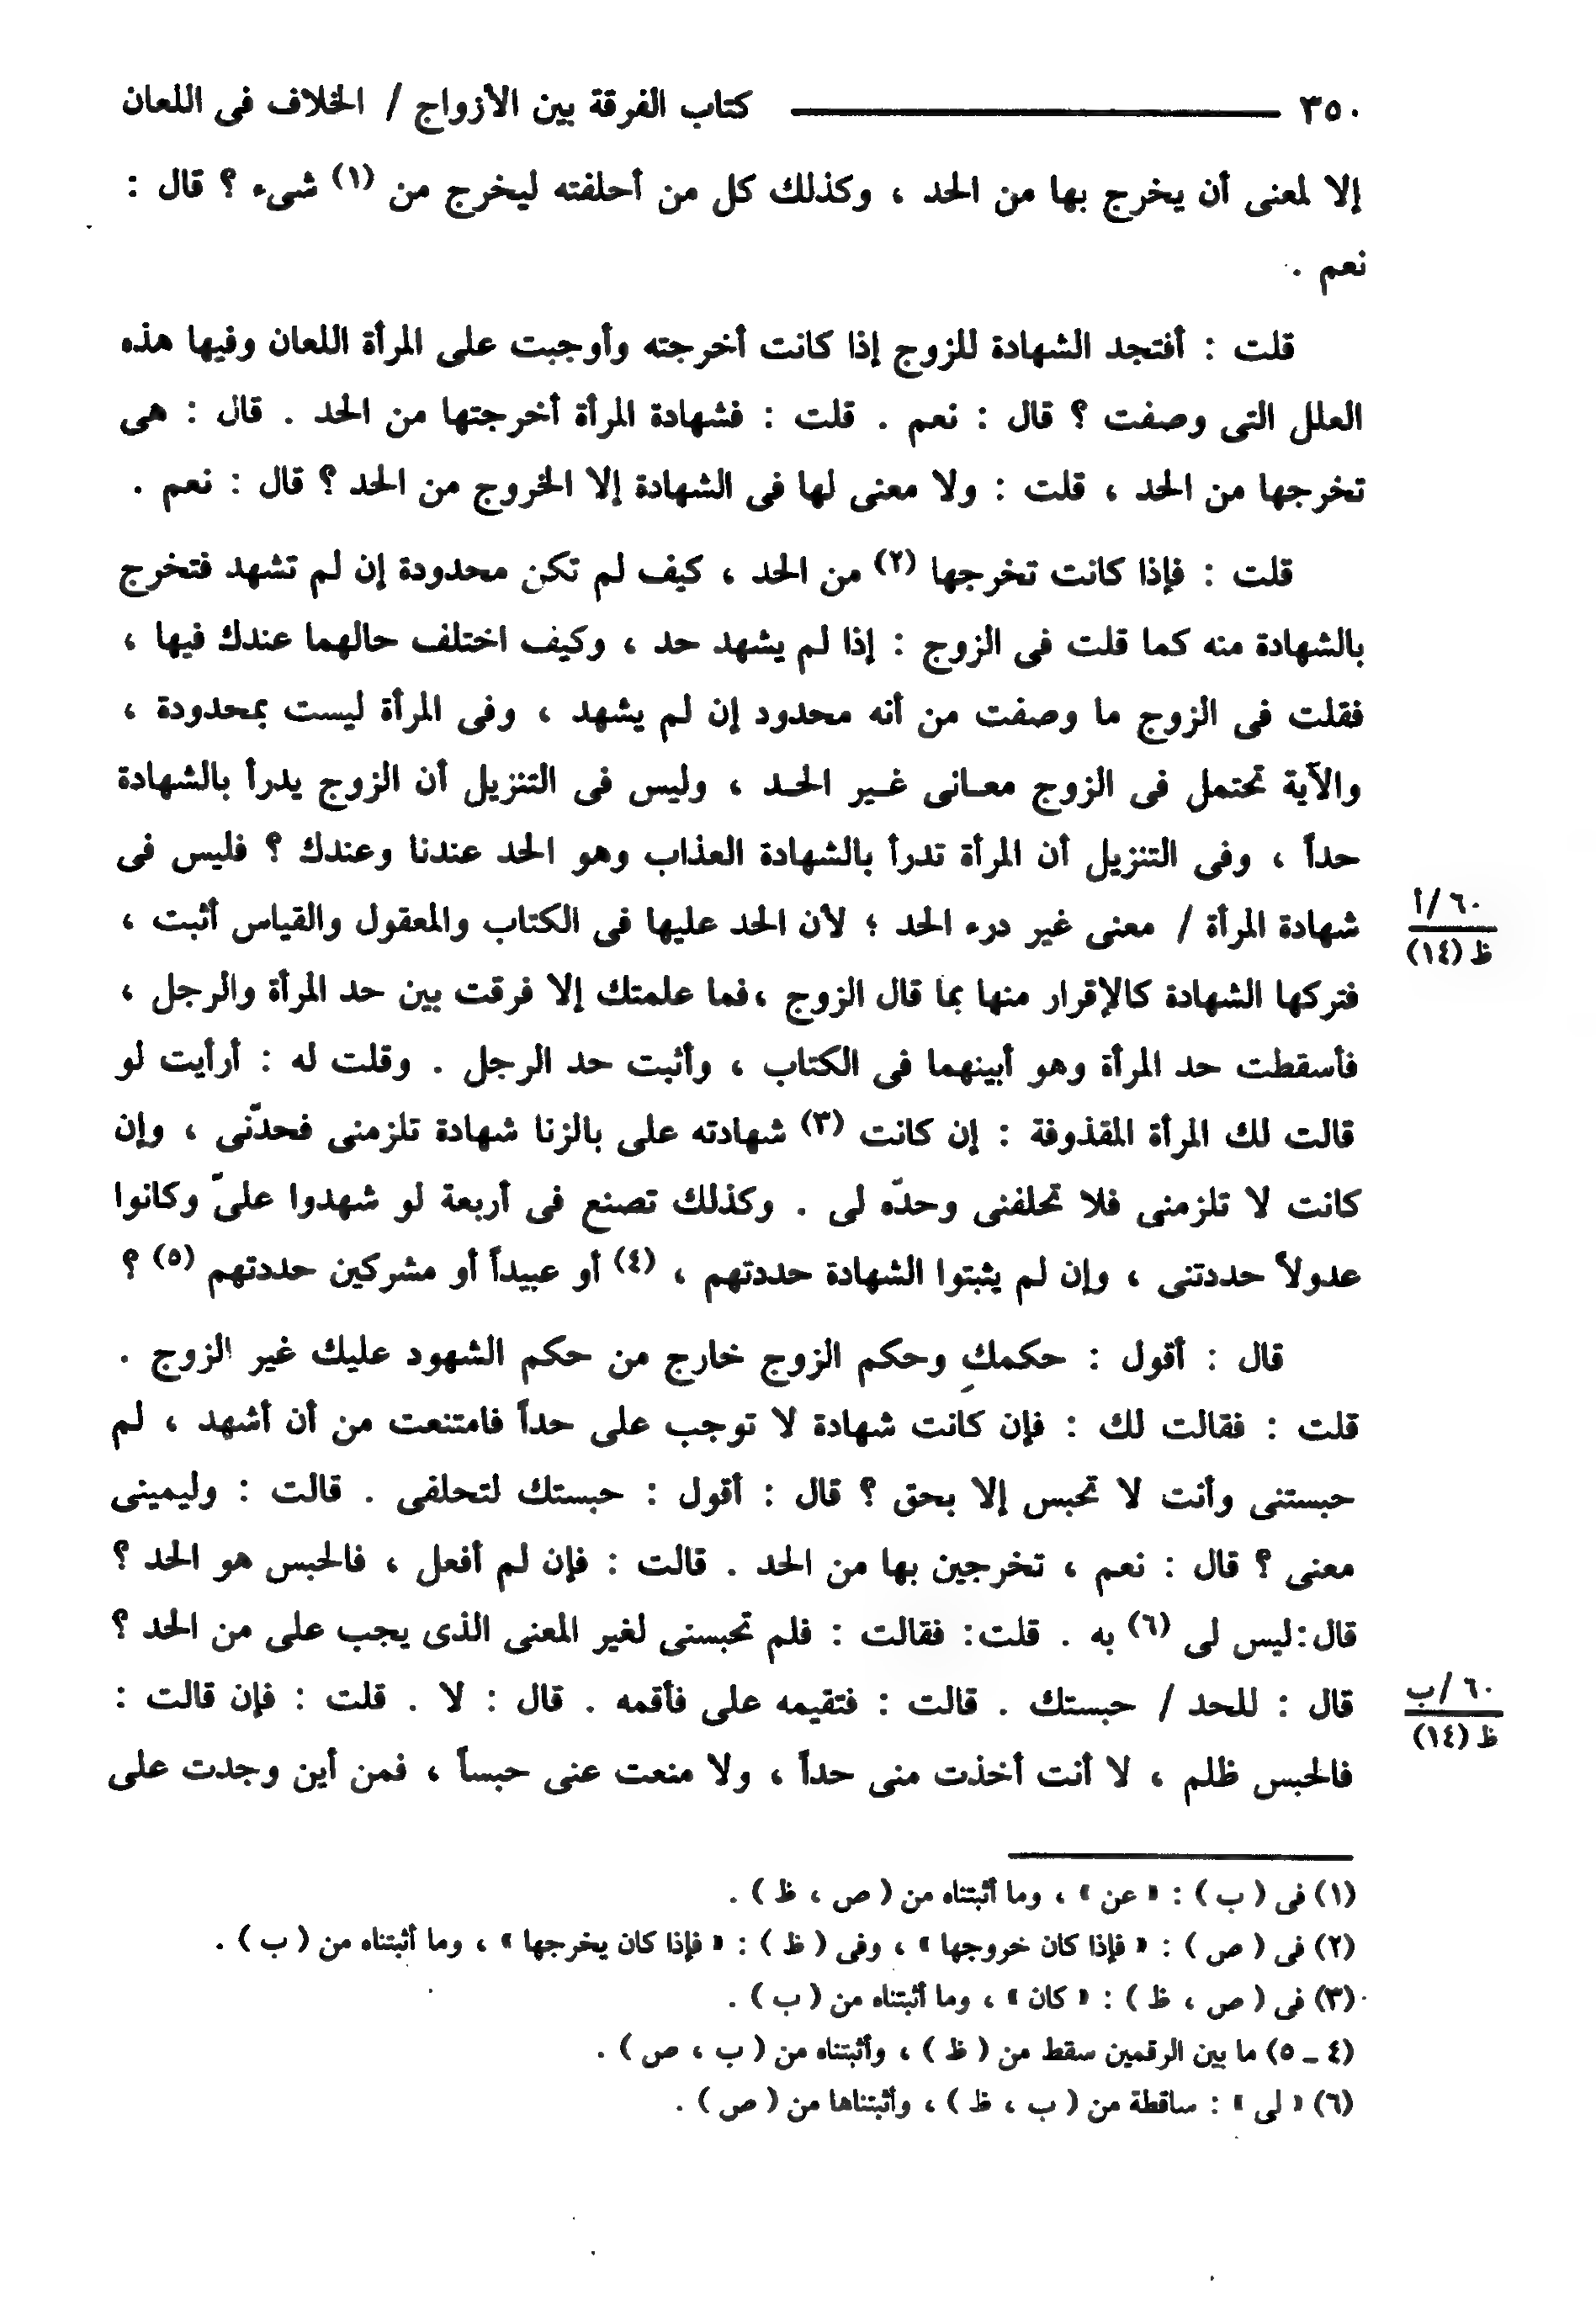 ٣٥٠ كتاب الفرقة بين الأزواج / الخلاف فى اللعان
إلا لمعنى أن يخرج بها من الحد ، وكذلك كل من أحلفته ليخرج من (١) شىء ؟ قال :
نعم .
قلت : أفتجد الشهادة للزوج إذا كانت أخرجته وأوجبت على المرأة اللعان وفيها هذه
العلل التى وصفت ؟ قال : نعم . قلت : فشهادة المرأة أخرجتها من الحد . قال : هى
تخرجها من الحد ، قلت : ولا معنى لها فى الشهادة إلا الخروج من الحد ؟ قال : نعم .
قلت : فإذا كانت تخرجها (٢) من الحد ، كيف لم تكن محدودة إن لم تشهد فتخرج
بالشهادة منه كما قلت فى الزوج : إذا لم يشهد حد ، وكيف اختلف حالهما عندك فيها ،
فقلت فى الزوج ما وصفت من أنه محدود إن لم يشهد ، وفى المرأة ليست بمحدودة ،
والآية تحتمل فى الزوج معـانى غـير الحـد ، وليس فى التنزيل أن الزوج يدرأ بالشهادة
حداً ، وفى التنزيل أن المرأة تدرأ بالشهادة العذاب وهو الحد عندنا وعندك ؟ فليس فى
شهادة المرأة / معنى غير درء الحد ؛ لأن الحد عليها فى الكتاب والمعقول والقياس أثبت ،
٦٠/أ
ظ (١٤)
فتركها الشهادة كالإقرار منها بما قال الزوج ،فما علمتك إلا فرقت بين حد المرأة والرجل ،
فأسقطت حد المرأة وهو أبينهما فى الكتاب ، وأثبت حد الرجل . وقلت له : أرأيت لو
قالت لك المرأة المقذوفة : إن كانت (٣) شهادته على بالزنا شهادة تلزمنى فحدّنى ، وإن
كانت لا تلزمنى فلا تحلفنى وحدّه لى . وكذلك تصنع فى أربعة لو شهدوا علىّ وكانوا
عدولاً حددتنى ، وإن لم يثبتوا الشهادة حددتهم ، (٤) أو عبيداً أو مشركين حددتهم (٥) ؟
قال : أقول : حكمكِ وحكم الزوج خارج من حكم الشهود عليك غير الزوج .
قلت : فقالت لك : فإن كانت شهادة لا توجب على حداً فامتنعت من أن أشهد ، لم
حبستنى وأنت لا تحبس إلا بحق ؟ قال : أقول : حبستك لتحلفى . قالت : وليمينى
معنى ؟ قال : نعم ، تخرجين بها من الحد . قالت : فإن لم أفعل ، فالحبس هو الحد ؟
قال:ليس لى (٦) به . قلت: فقالت : فلم تحبسنى لغير المعنى الذى يجب على من الحد ؟
قال : للحد / حبستك . قالت : فتقيمه على فأقمه . قال : لا . قلت : فإن قالت :
٦٠/ب
ظ (١٤)
فالحبس ظلم ، لا أنت أخذت منى حداً ، ولا منعت عنى حبساً ، فمن أين وجدت على
(١) فى ( ب ) : « عن » ، وما أثبتناه من ( ص ، ظ ) .
(٢) فى ( ص ) : « فإذا كان خروجها » ، وفى ( ظ ) : « فإذا كان يخرجها » ، وما أثبتناه من ( ب ) .
(٣) فى ( ص ، ظ ) : « كان » ، وما أثبتناه من ( ب ) .
(٤ ـ ٥) ما بين الرقمين سقط من ( ظ ) ، وأثبتناه من ( ب ، ص ) .
(٦) « لى » : ساقطة من ( ب ، ظ ) ، وأثبتناها من ( ص ) .